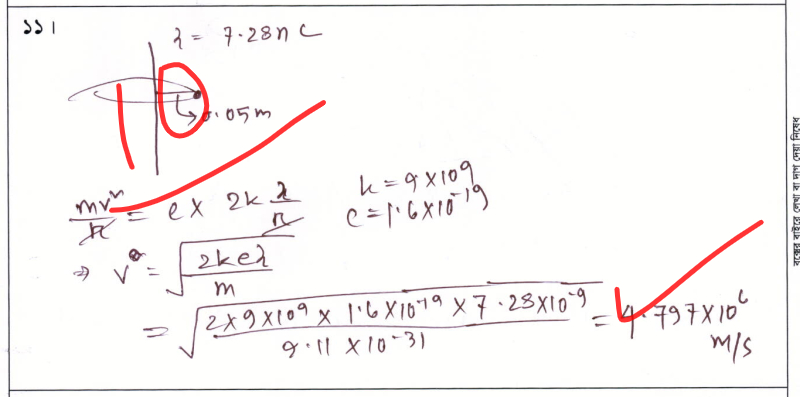 ১১।
λ = 7.28n C
0.05m
mv²/r = e × 2k λ/r
k = 9 × 10⁹
e = 1.6 × 10⁻¹⁹
⇒ v = √(2keλ/m)
= √(2 × 9 × 10⁹ × 1.6 × 10⁻¹⁹ × 7.28 × 10⁻⁹ / 9.11 × 10⁻³¹) = 4.797 × 10⁶
m/s
বক্সের বাইরে লেখা বা দাগ দেয়া নিষেধ